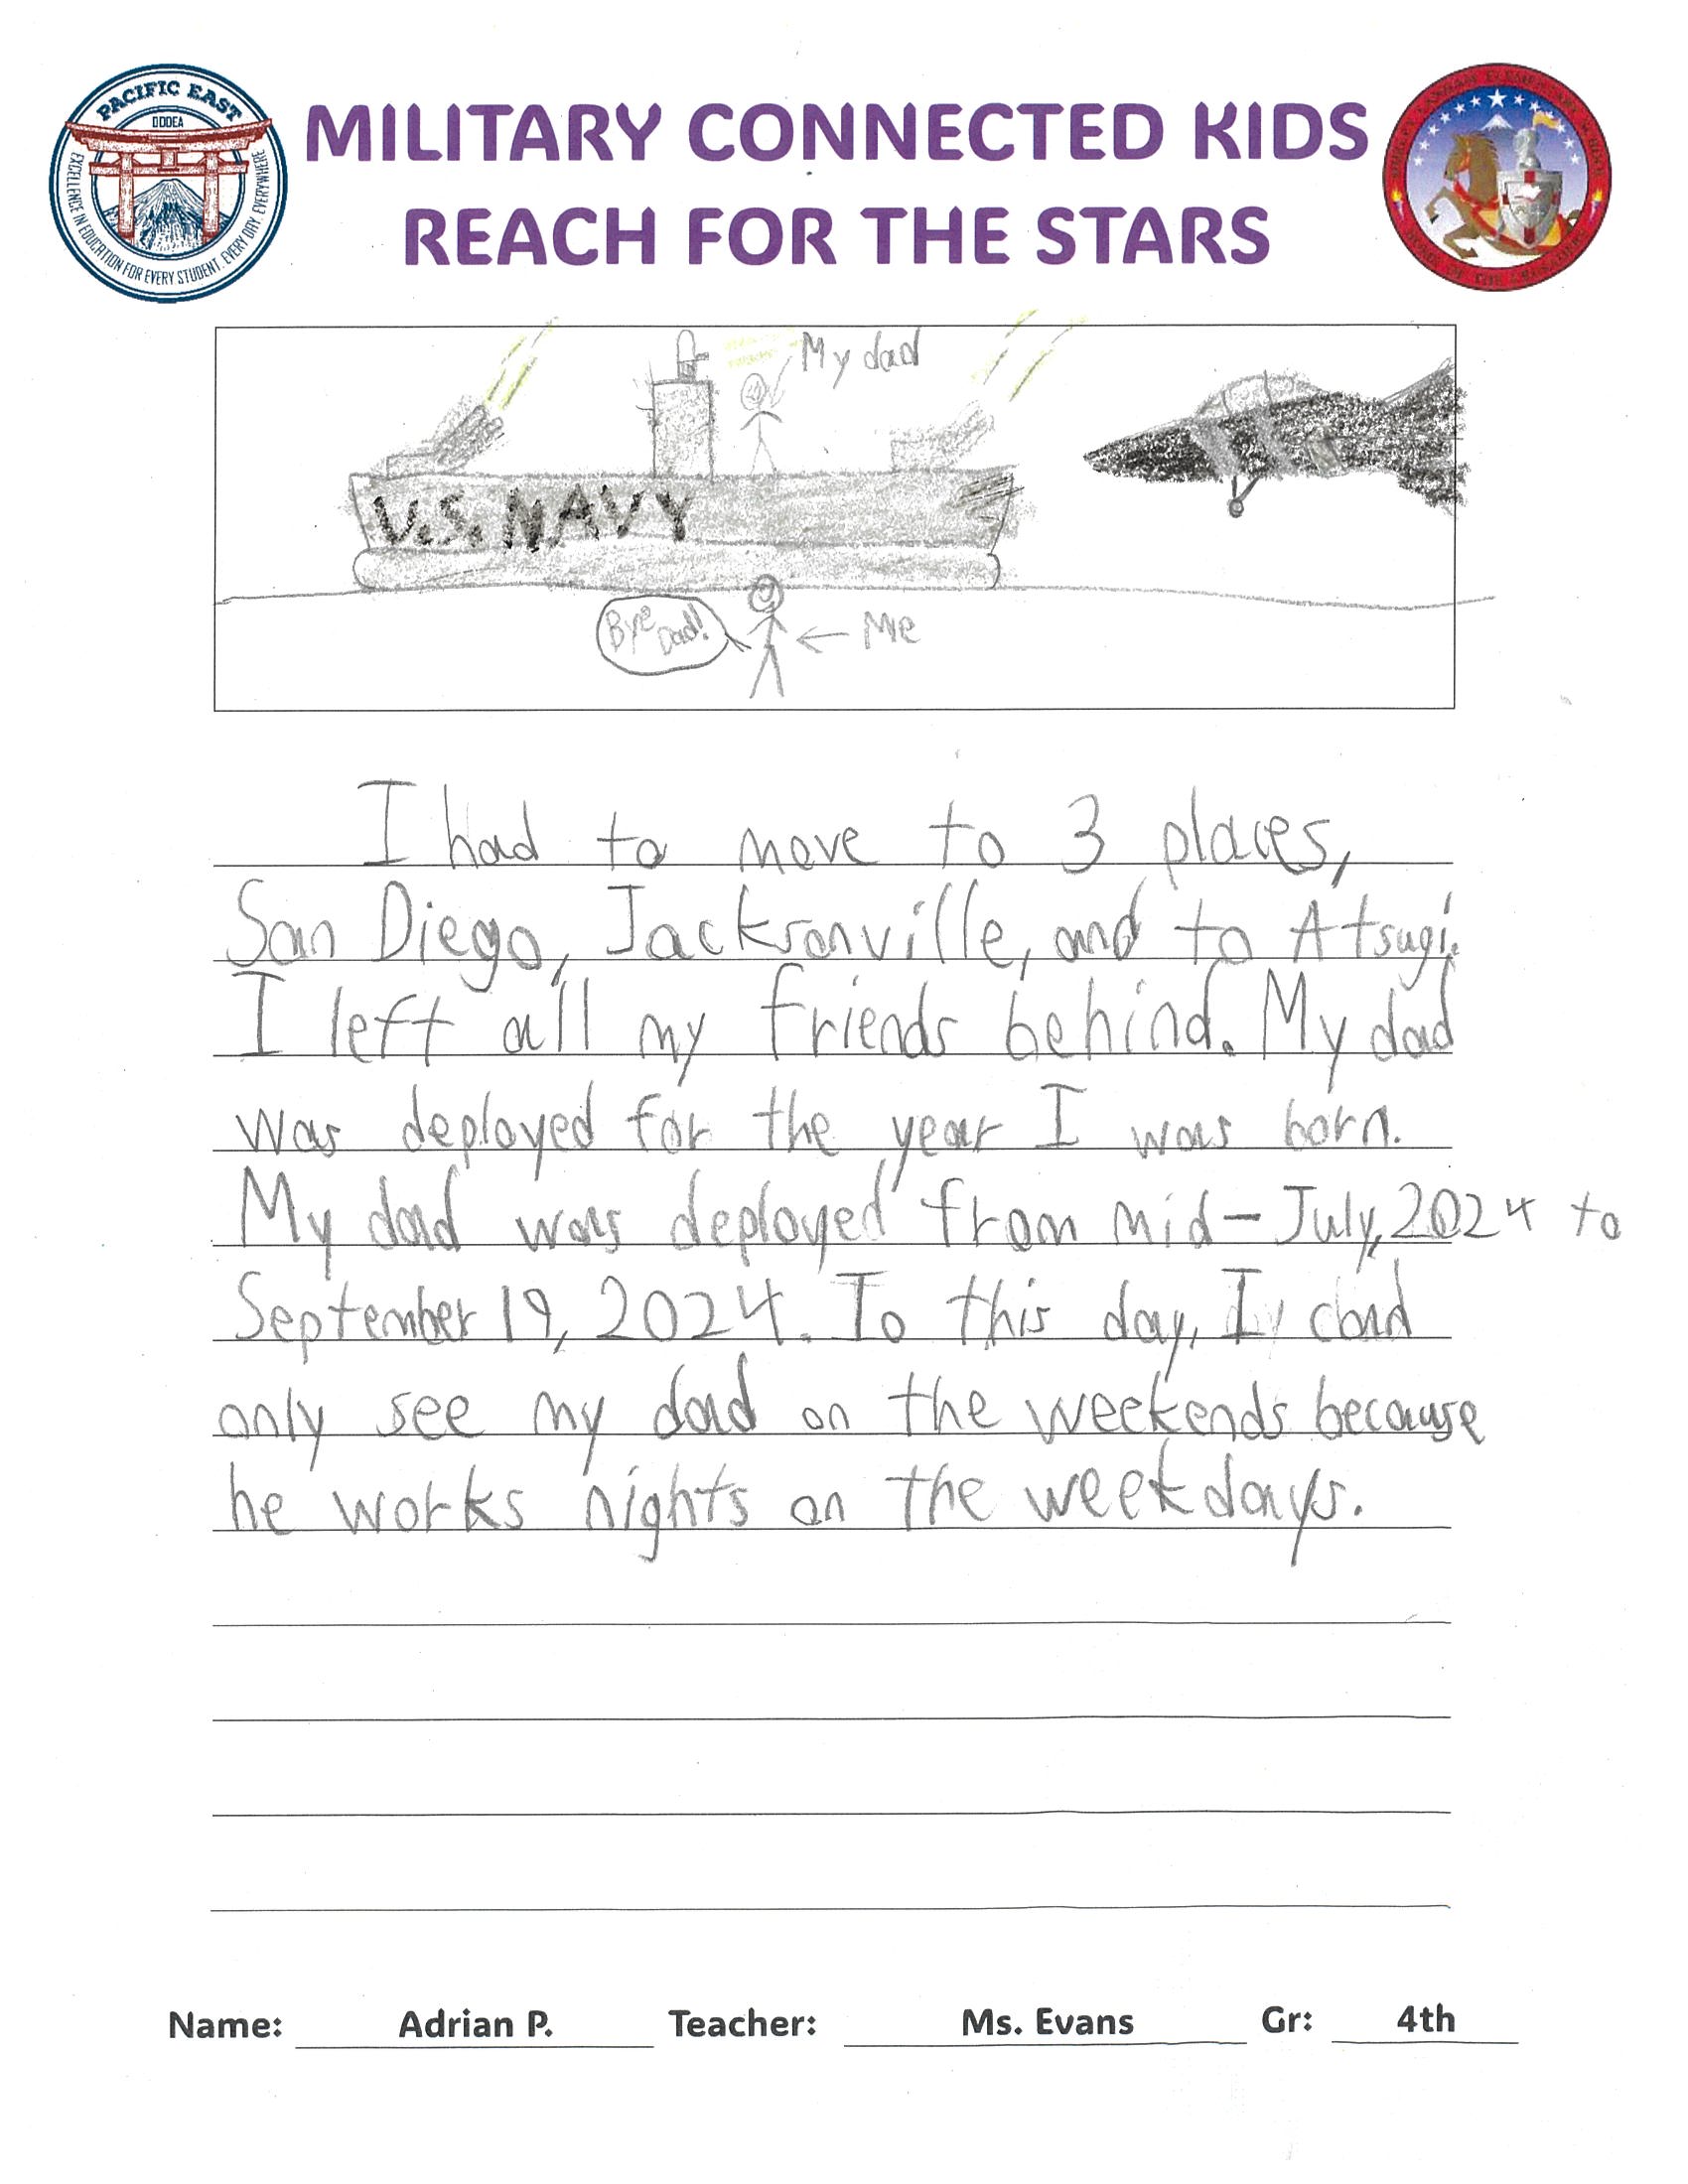 PACIFIC EAST
DODEA
EXCELLENCE IN EDUCATION FOR EVERY STUDENT, EVERY DAY, EVERYWHERE
MILITARY CONNECTED KIDS
REACH FOR THE STARS
My dad
U.S. NAVY
Bye Dad!
Me
I had to move to 3 places,
San Diego, Jacksonville, and to Atsugi.
I left all my friends behind. My dad
was deployed for the year I was born.
My dad was deployed from mid-July, 2024 to
September 19, 2024. To this day, I
only see my dad on the weekends because
he works nights on the weekdays.
Name: Adrian P. Teacher: Ms. Evans Gr: 4th